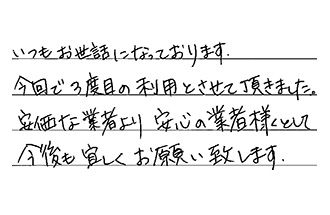 いつもお世話になっております.
今回で3度目の利用とさせて頂きました。
安価な業者より安心の業者様くとして
今後も宜しくお願い致します.